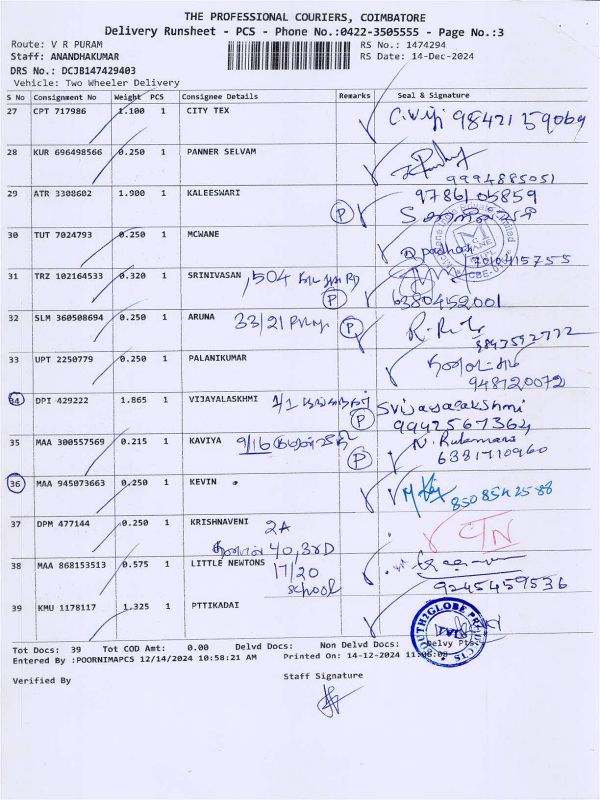 THE PROFESSIONAL COURIERS, COIMBATORE
Delivery Runsheet - PCS - Phone No.:0422-3505555 - Page No.:3
Route: V R PURAM RS No.: 1474294
Staff: ANANDHAKUMAR RS Date: 14-Dec-2024
DRS No.: DCJB147429403
Vehicle: Two Wheeler Delivery
S No Consignment No Weight PCS Consignee Details Remarks Seal & Signature
27 CPT 717986 1.100 1 CITY TEX C.Viji 9842159069
28 KUR 696498566 0.250 1 PANNER SELVAM
9994885051
29 ATR 3308602 1.900 1 KALEESWARI 9786105859
P
30 TUT 7024793 0.250 1 MCWANE
7010415755
31 TRZ 102164533 0.320 1 SRINIVASAN 504
P 6380452001
32 SLM 360508694 0.250 1 ARUNA 33/21 P
33 UPT 2250779 0.250 1 PALANIKUMAR
948120072
34 DPI 429222 1.865 1 VIJAYALASHMI 1/1 Svijayalakshmi
P 9942567364
35 MAA 300557569 0.215 1 KAVIYA 9/16
P 6381710960
36 MAA 945073663 0.250 1 KEVIN
37 DPM 477144 0.250 1 KRISHNAVENI 2A
40, 3RD
38 MAA 868153513 0.575 1 LITTLE NEWTONS
17/20
school 9245459536
39 KMU 1178117 1.325 1 PTTIKADAI
SOUTH2GLOBE
Tot Docs: 39 Tot COD Amt: 0.00 Delvd Docs: Non Delvd Docs:
Entered By :POORNIMAPCS 12/14/2024 10:58:21 AM Printed On: 14-12-2024
Staff Signature
Verified By